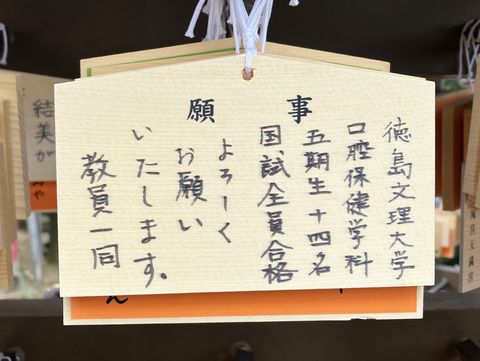 願事
徳島文理大学
口腔保健学科
五期生十四名
国試全員合格
よろしく
お願い
いたします。
教員一同
結美が
ん